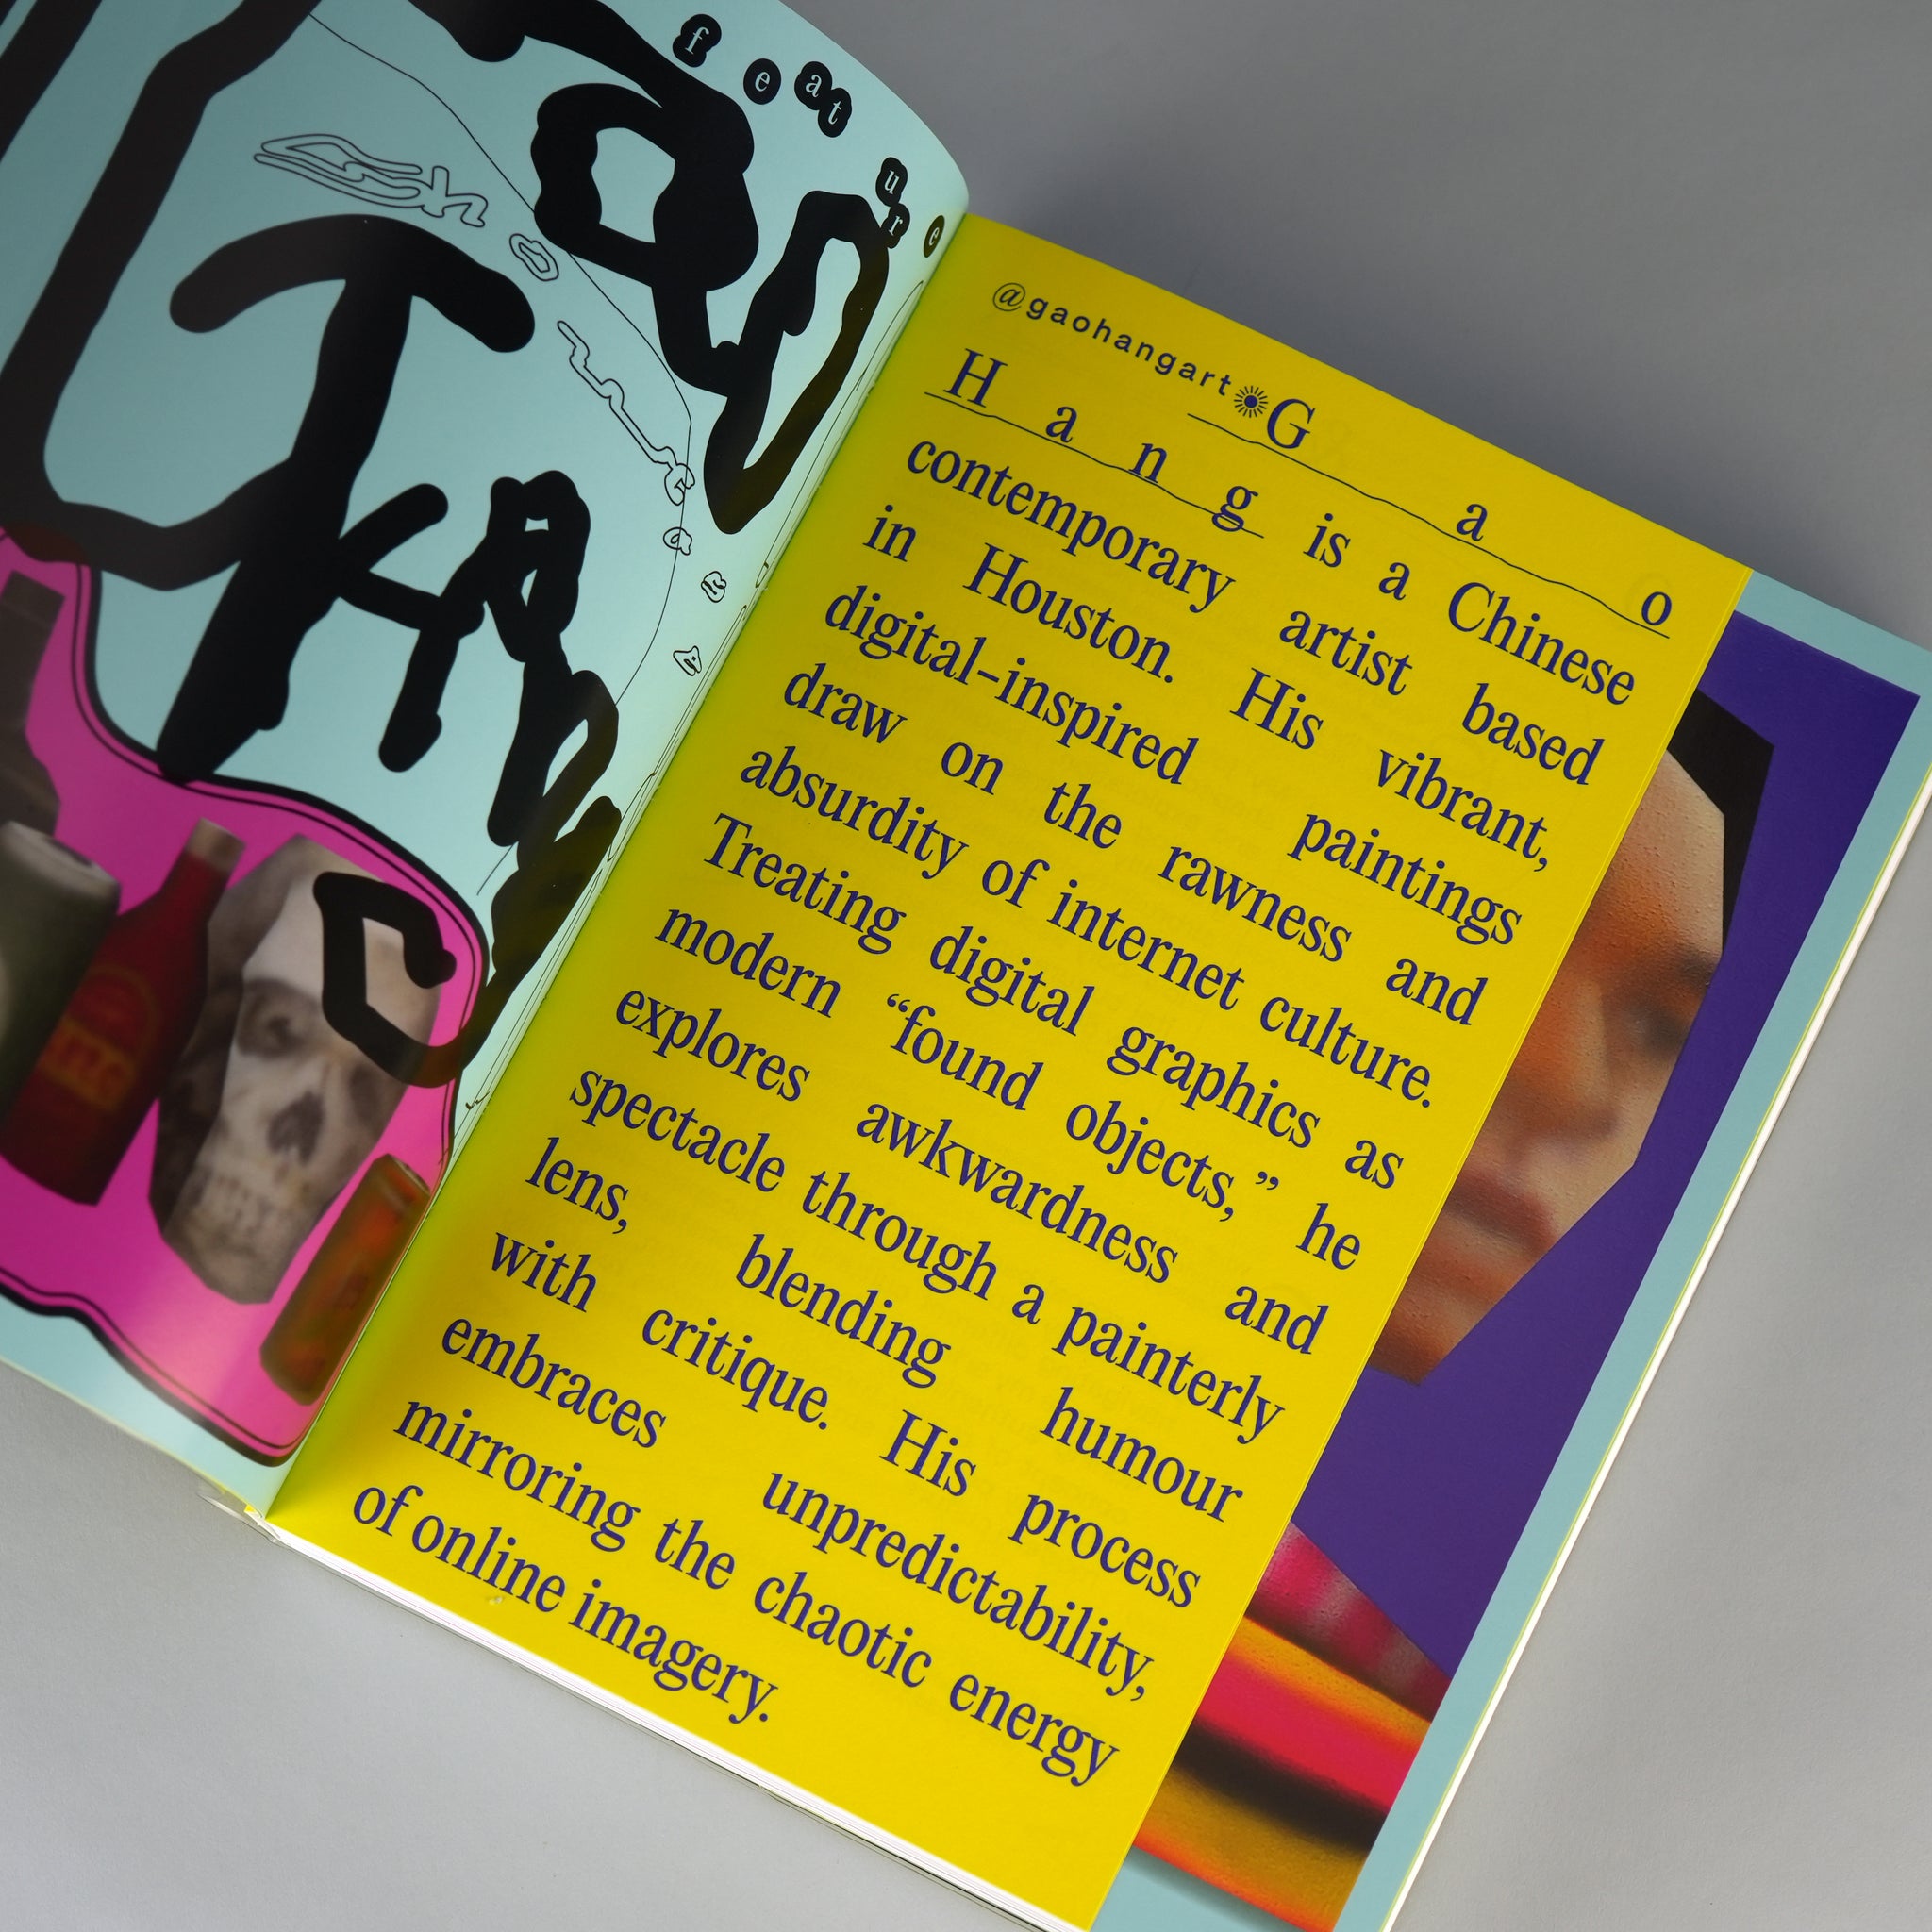 feature
@gaohangart G a o
H a n g is a Chinese
contemporary artist based
in Houston. His vibrant,
digital-inspired paintings
draw on the rawness and
absurdity of internet culture.
Treating digital graphics as
modern “found objects,” he
explores awkwardness and
spectacle through a painterly
lens, blending humour
with critique. His process
embraces unpredictability,
mirroring the chaotic energy
of online imagery.